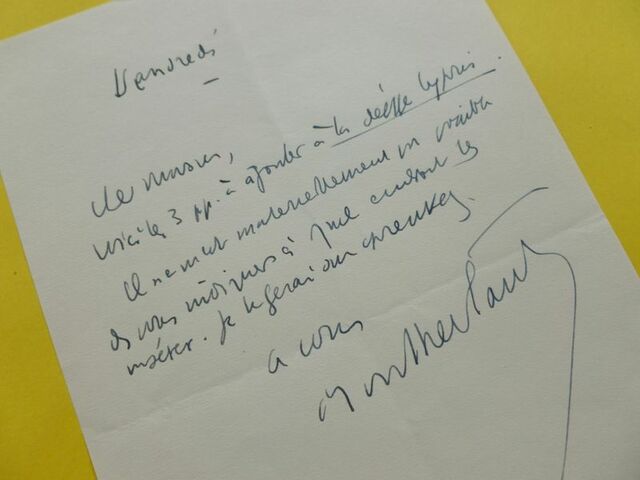 Vendredi
Monsieur,
voici les 3 pp. à ajouter à la déesse Cypris.
Il m'est matériellement
de vous indiquer à quel endroit les
insérer. Je le ferai sur épreuves.
à vous
Montherlant